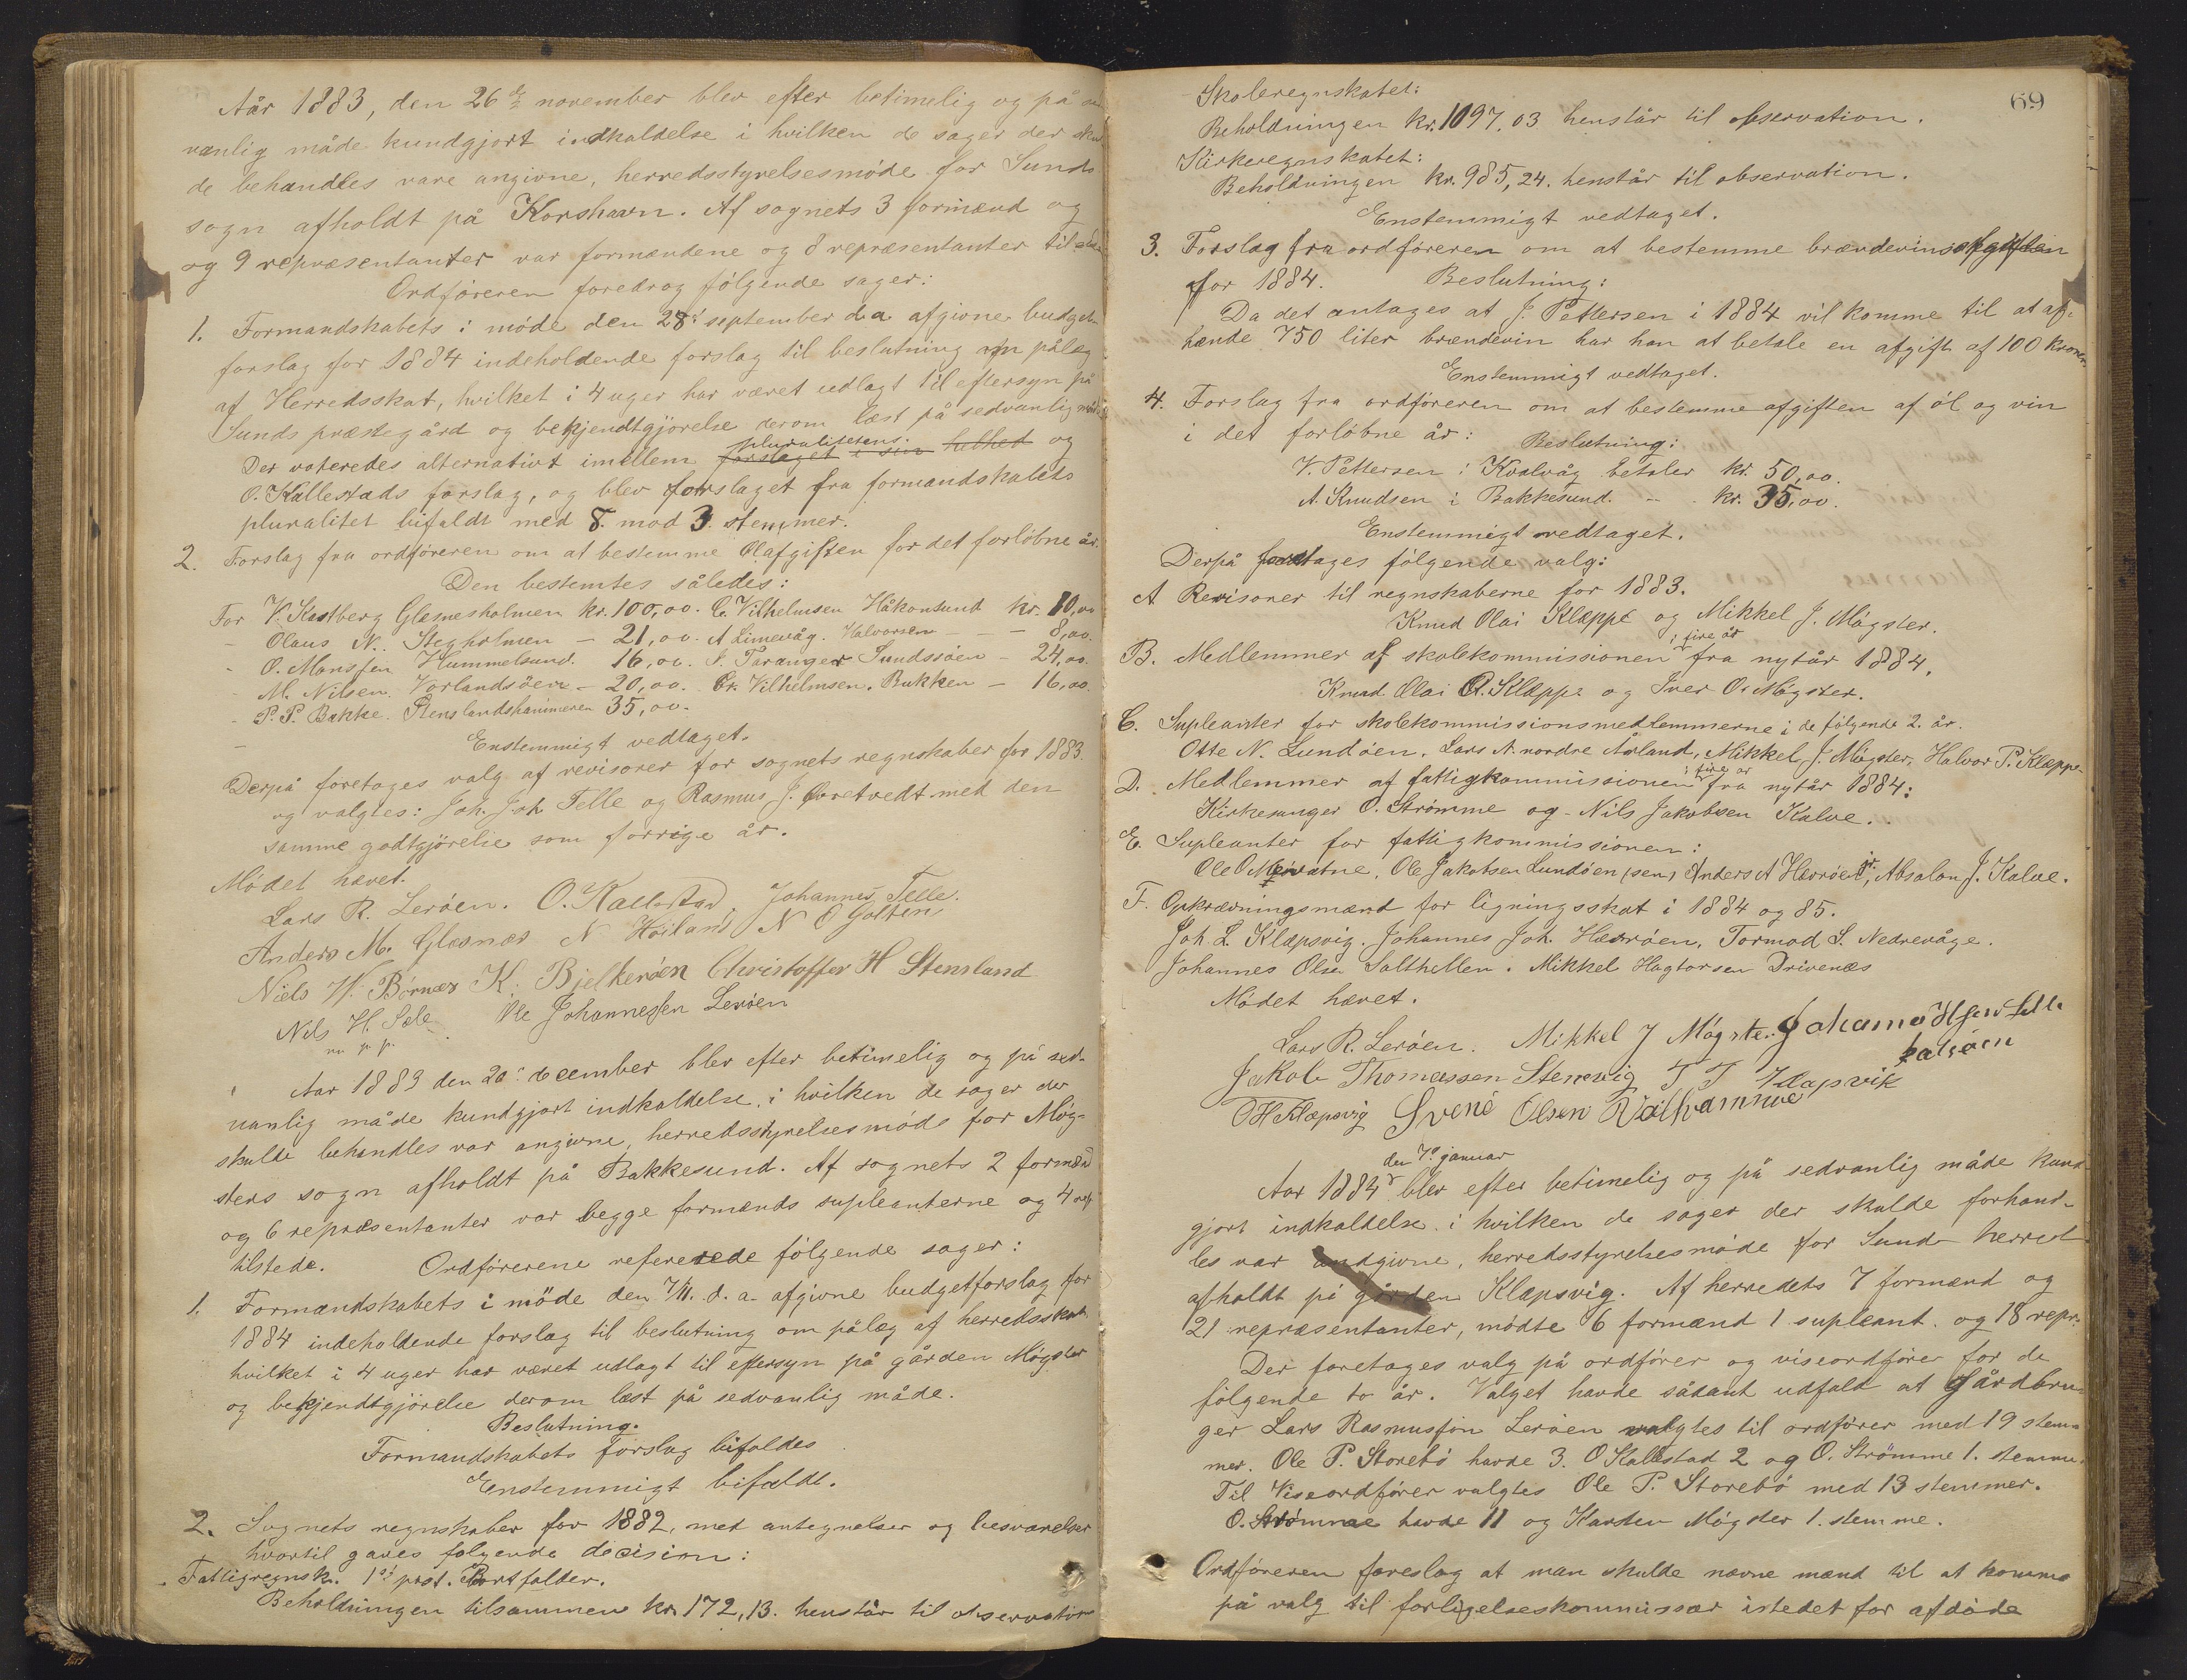 Aår 1883, den 26de november blev efter betimelig og på
vanlig måde kundgjort indkaldelse i hvilken de sager der skul
de behandles vare angivne, herredsstyrelsesmöde for Sunds
sogn afholdt på Korshavn. Af sognets 3 formænd og
og 9 repræsentanter var formændene og 8 repræsentanter til
Ordföreren foredrog fölgende sager:
1. Formandskabets i möde den 28de september d. a. afgivne budget
forslag for 1884 indeholdende forslag til beslutning om pålæg
af Herredsskat, hvilket i 4 uger har været udlagt til eftersyn på
Sunds præstegård og bekjendtgjörelse derom læst på sedvanlig måde
pluralitetens
Der voteredes alternativt imellem forslaget i sin helhed og
O. Kallestads forslag, og blev forslaget fra formandskabets
pluralitet bifaldt med 8. mod 3. stemmer.
2. Forslag fra ordföreren om at bestemme Ölafgiften for det forlöbne år.
Den bestemtes således:
For V. Kastberg Glesnesholmen kr. 100,00. C. Vilhelmsen Håkonsund kr. 10,00
- Olaus N. Stegholmen - 21,00. A Limevåg. Halvorsen - - 8,00.
- O. Monssen Hummelsund. 16,00. S. Taranger Sundssöen - 24,00.
- M. Nilsen. Vorlandsöen - 20,00. Cr. Vilhelmsen. Bukken - 16,00.
- P. P. Bakke. Stenslandshammeren 35,00.
Enstemmigt vedtaget.
Derpå foretages valg af revisorer for sognets regnskaber for 1883.
og valgtes: Joh. Joh Telle og Rasmus J. Övretvedt med den
samme godtgjörelse som forrige år.
Mödet hævet.
Lars R. Leröen. O. Kallestad. Johannes Telle.
Anders M. Glesnæs N Höiland N O Golten
Niels W. Börnes K. Bjelkeröen Christoffer H Stensland
Nils H. Sele Ole Johannessen Leröen
m p. p.
Aar 1883 den 20de december blev efter betimelig og på sed-
vanlig måde kundgjort indkaldelse, i hvilken de sager der
skulde behandles var angivne, herredsstyrelsesmöde for Mög-
sters sogn afholdt på Bakkesund. Af sognets 2 formænd
og 6 repræsentanter var begge formænds supleanterne og 4 rep
tilstede. Ordförerene refererede fölgende sager:
1. Formandskabets i möde den 7/11. d. a. afgivne budgetforslag for
1884 indeholdende forslag til beslutning om pålæg af herredsskat
hvilket i 4 uger har været udlagt til eftersyn på gården Mögster
og bekjendtgjörelse derom læst på sedvanlig måde.
Beslutning.
Formandskabets forslag bifaldes
Enstemmigt bifaldt.
2. Sognets regnskaber for 1882, med antegnelser og besvarelser
hvortil gaves følgende decision:
Fattigregnsk. 1ste post. Bortfalder.
Beholdningen tilsammen kr. 172,13. henstår til observation
69
Skoleregnskabet:
Beholdningen kr. 1097.03 henstår til observation.
Kirkeregnskabet:
Beholdningen kr. 985,24. henstår til observation.
Enstemmigt vedtaget.
3. Forslag fra ordföreren om at bestemme brændevinsafgiften
for 1884. Beslutning:
Da det antages at J. Pettersen i 1884 vil komme til at af-
hænde 750 liter brændevin har han at betale en afgift af 100 kroner
Enstemmigt vedtaget.
4. Forslag fra ordföreren om at bestemme afgiften af öl og vin
i det forlöbne år: Beslutning:
V. Pettersen i Kvalvåg betaler kr. 50,00.
A. Knudsen i Bakkesund. - kr. 35,00.
Enstemmigt vedtaget.
Derpå foretages fölgende valg:
A Revisorer til regnskaberne for 1883.
Knud Olai Kleppe og Mikkel J. Mögster.
i fire år
B. Medlemmer af skolekommissionen fra nytår 1884.
Knud Olai A. Kleppe og Iver O. Mögster.
C. Supleanter for skolekommissionsmedlemmerne i de fölgende 2. år.
Otte N. Lundöen, Lars N. nordre Årland, Mikkel J. Mögster, Halvor P. Kleppe
i fire år
D. Medlemmer af fattigkommissionen fra nytår 1884:
Kirkesanger O. Strømme og Nils Jakobsen Kalve.
E. Supleanter for fattigkommissionen:
Ole O Mövatne, Ole Jakobsen Lundöen (sen) Anders A Hevröen, Absalon J. Kalve.
F. Opkrævningsmænd for ligningsskat i 1884 og 85.
Joh. L. Klepsvig. Johannes Joh. Hevröen, Tormod S. Nedrevåge.
Johannes Olsen Salthellen. Mikkel Hagtorsen Drivenes
Mödet hævet.
Lars R. Leröen. Mikkel J Mögster.
Jakob Thomassen Stenevig T T Klepsvik
OH Klepsvig Svend Olsen
den 7de januar
Aar 1884 blev efter betimelig og på sedvanlig måde kund-
gjort indkaldelse i hvilken de sager der skulde forhand-
les var andgivne, herredsstyrelsesmöde for Sund herred
afholdt på gården Klepsvig. Af herredets 7 formænd og
21 repræsentanter, mödte 6 formænd 1 supleant. og 18 repr.
Der foretages valg på ordförer og viseordförer for de
fölgende to år. Valget havde sådant udfald at Gårdbru-
ger Lars Rasmusson Leröen valgtes til ordförer med 19 stem-
mer. Ole P. Storebö havde 3. O Kallestad 2 og O. Strömme 1. stemme.
Til Viseordförer valgtes Ole P. Storebö med 13 stemmer.
O. Strömme havde 11 og Karsten Mögster 1. stemme.
Ordföreren foreslog at man skulde nævne mænd til at komme
på valg til forligelseskommissær istedet for afdöde